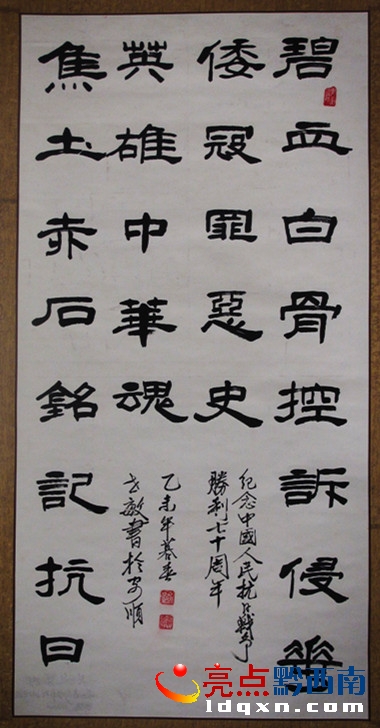 碧血白骨控訴侵華
倭冦罪惡史
紀念中國人民抗日戰爭
勝利七十周年
焦土赤石銘記抗日
英雄中華魂
乙未年暮春
敏書於安順
亮点黔西南
ldqxn.com